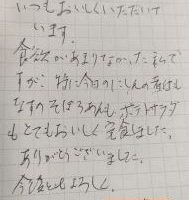 いつもおいしくいただいて
います。
食欲があまりなかった私で
すが、特に今日のにしんの煮付も
なすのそぼろあんも ポテトサラダ
もとてもおいしく完食しました。
ありがとうございました。
今後ともよろしく。